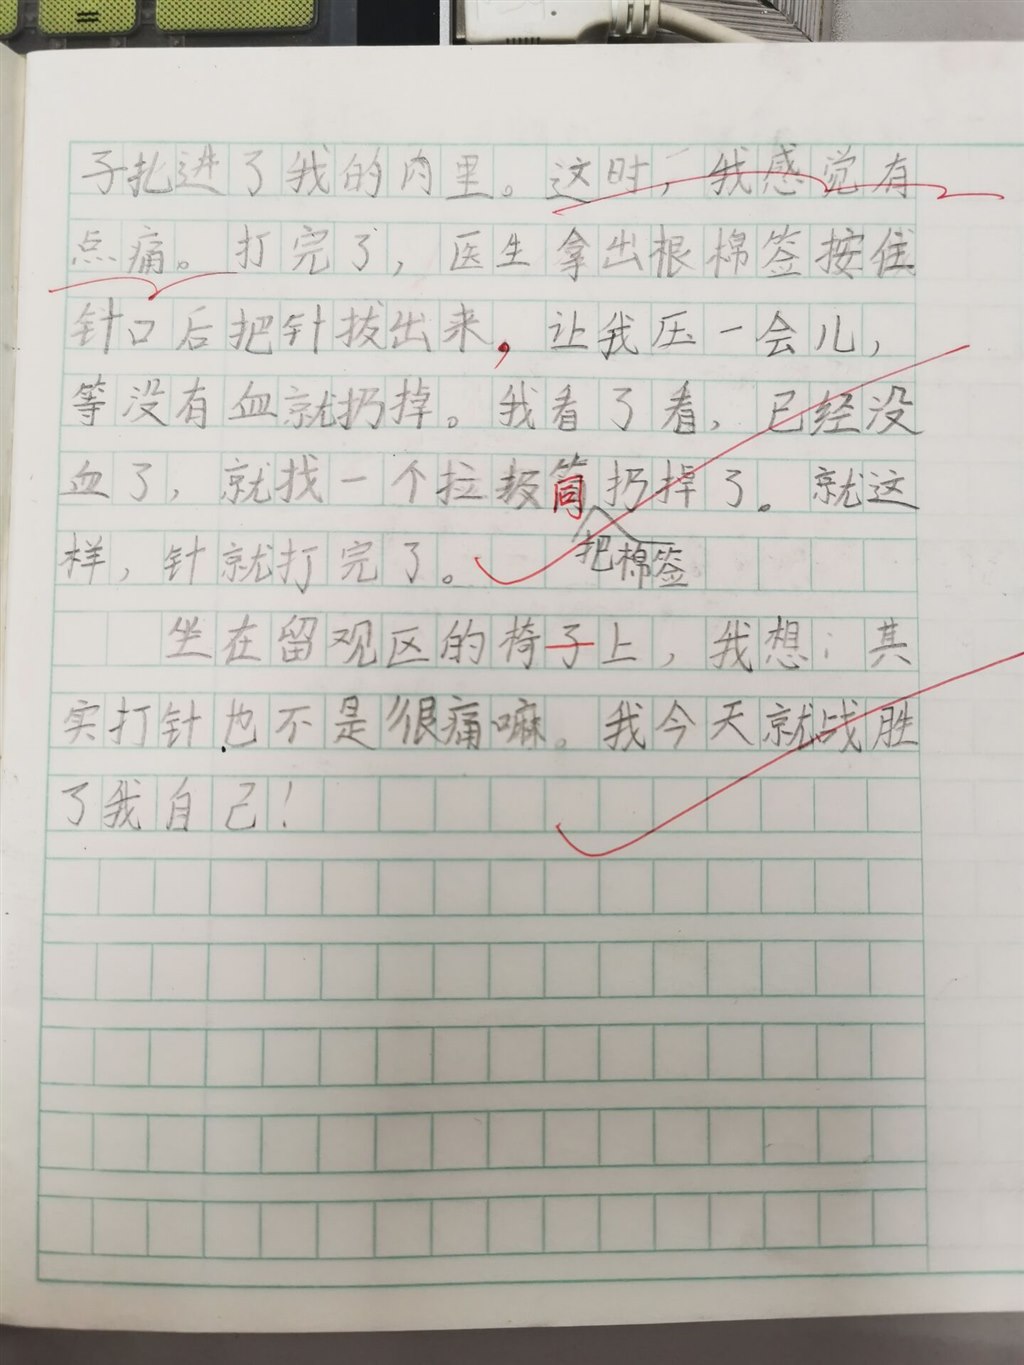 子扎进了我的肉里。这时，我感觉有
点痛。打完了，医生拿出根棉签按住
针口后把针拔出来，让我压一会儿，
等没有血就扔掉。我看了看，已经没
血了，就找一个垃圾筒扔掉了。就这
把棉签
样，针就打完了。
坐在留观区的椅子上，我想：其
实打针也不是很痛嘛。我今天就战胜
了我自己！